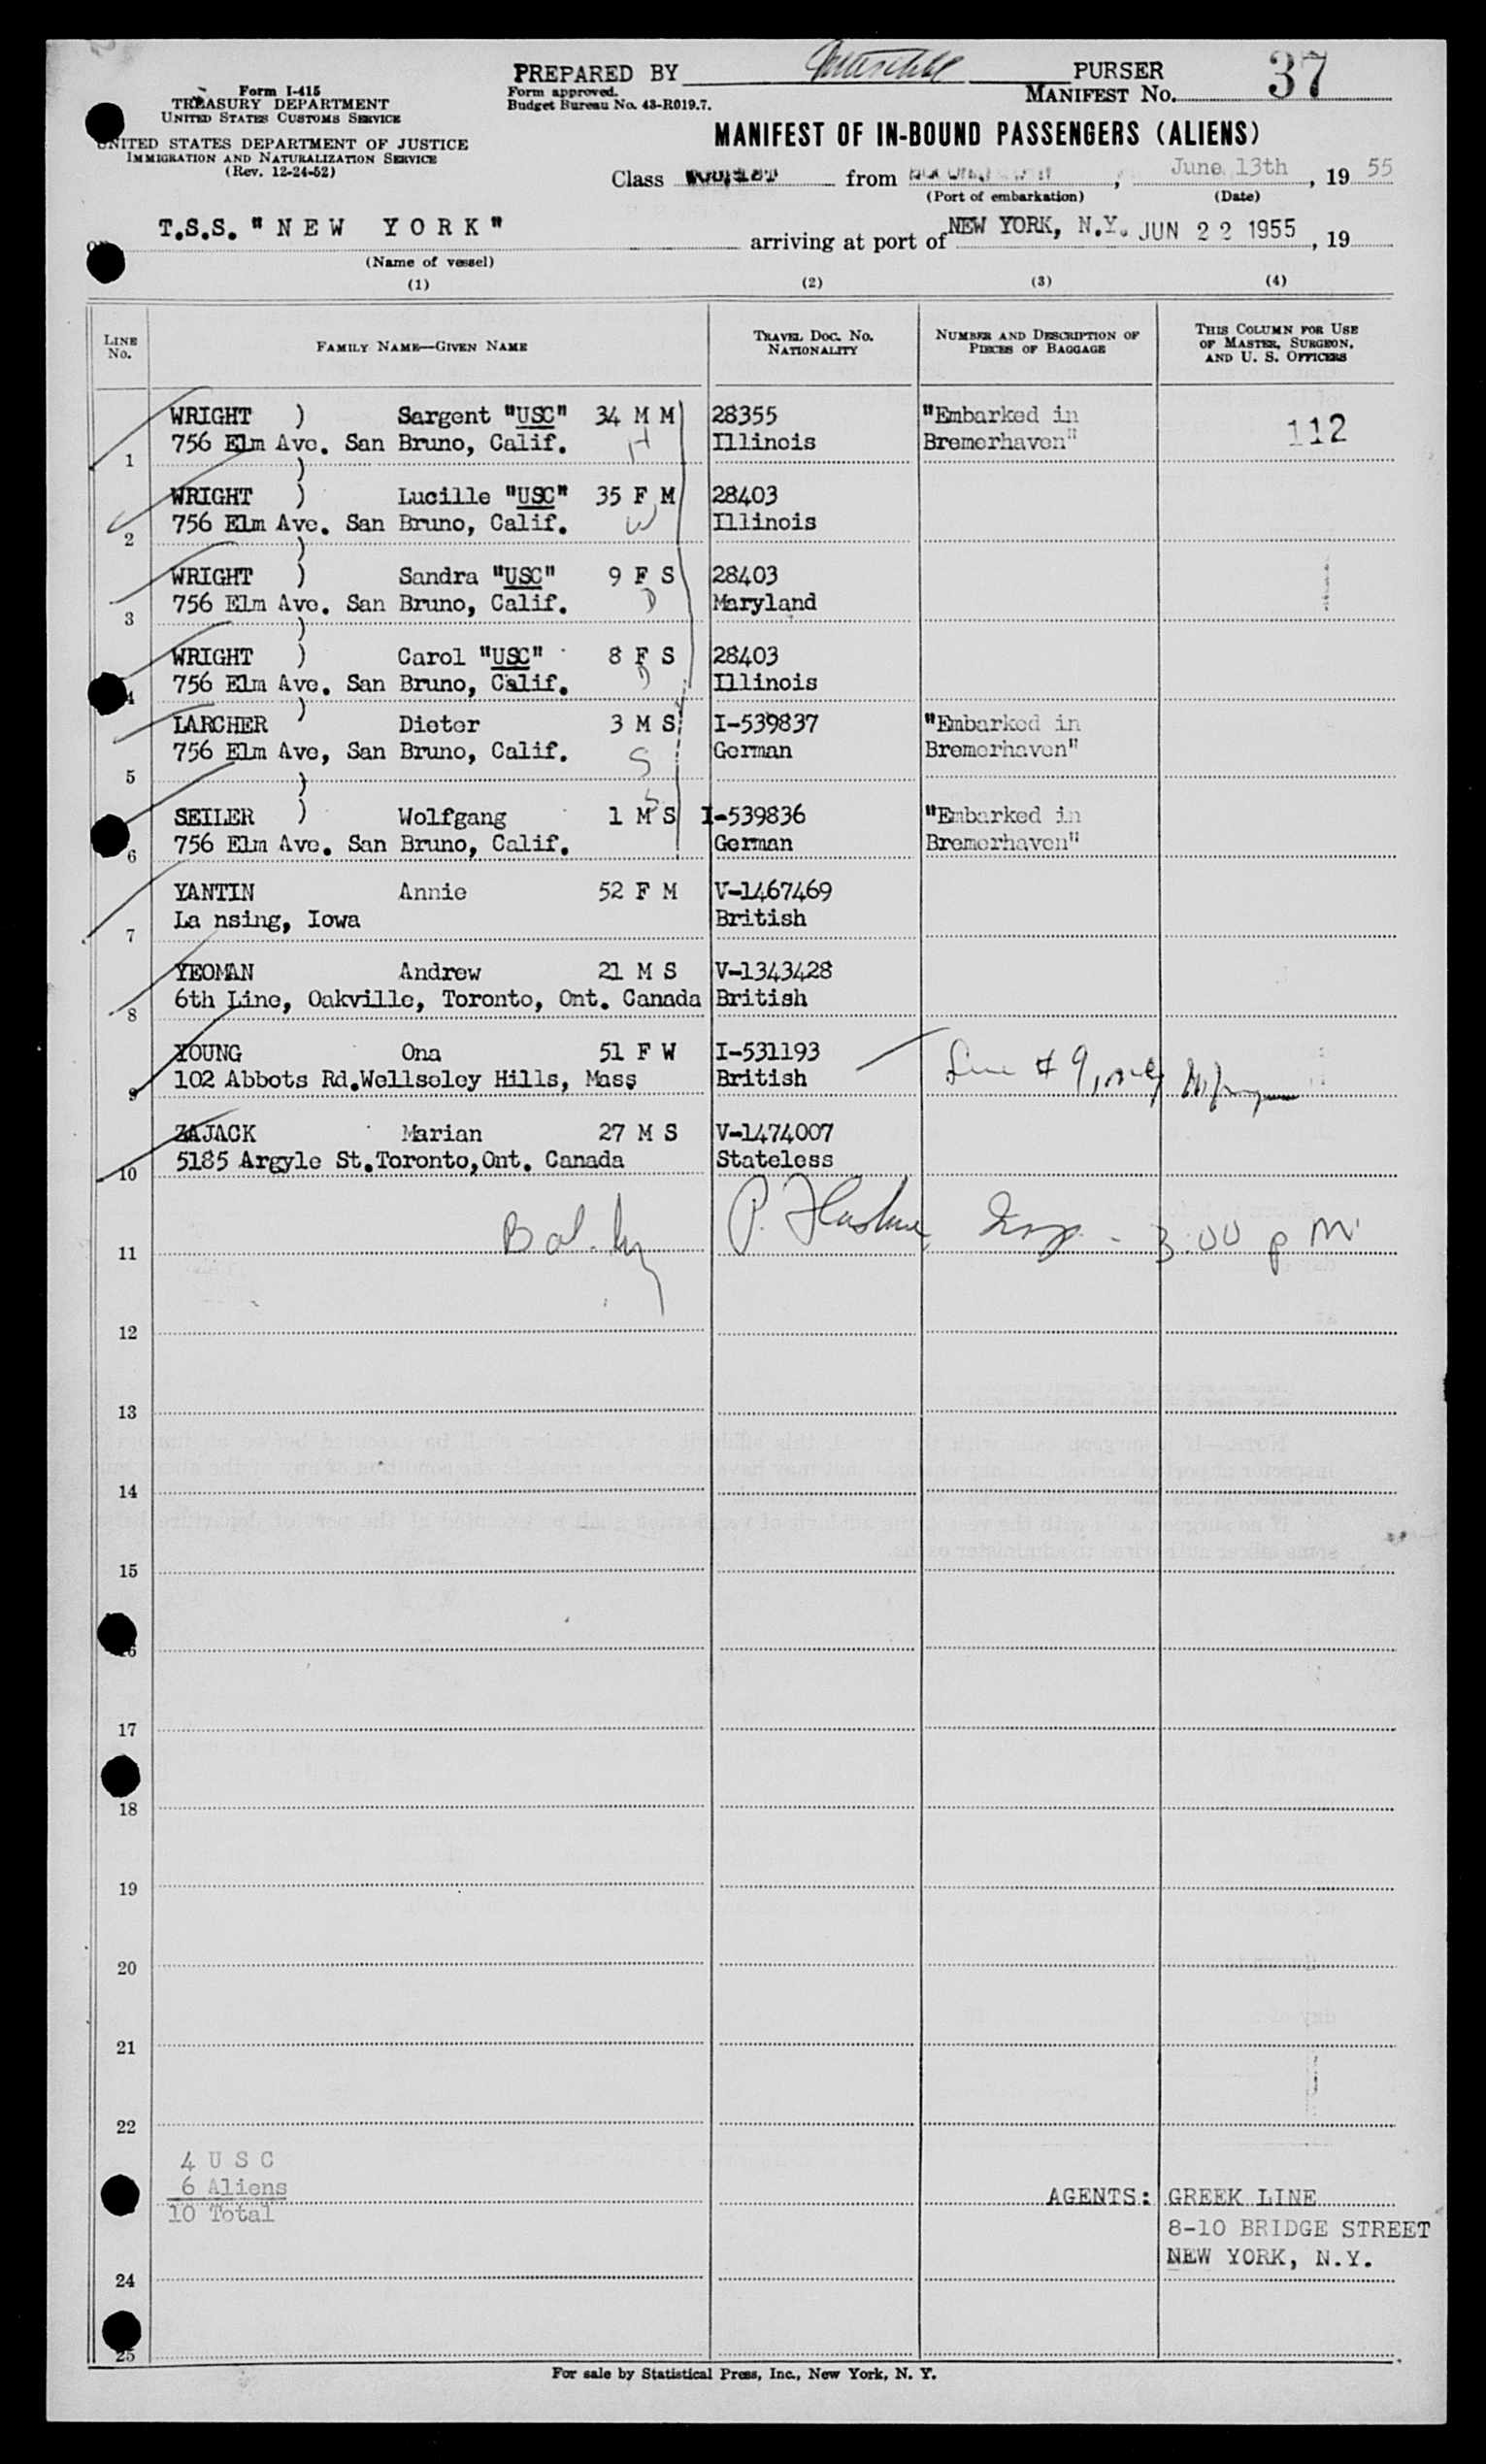 PREPARED BY PURSER
37
Form I-415
TREASURY DEPARTMENT
UNITED STATES CUSTOMS SERVICE
Form approved.
Budget Bureau No. 43-R019.7.
MANIFEST NO.
UNITED STATES DEPARTMENT OF JUSTICE
IMMIGRATION AND NATURALIZATION SERVICE
(Rev. 12-24-52)
MANIFEST OF IN-BOUND PASSENGERS (ALIENS)
Class from , June 13th , 19 55
(Port of embarkation) (Date)
T.S.S. "NEW YORK" arriving at port of NEW YORK, N.Y. JUN 22 1955 , 19
(Name of vessel)
(1) (2) (3) (4)
LINE NO.
FAMILY NAME—GIVEN NAME
TRAVEL DOC. NO. NATIONALITY
NUMBER AND DESCRIPTION OF PIECES OF BAGGAGE
THIS COLUMN FOR USE OF MASTER, SURGEON, AND U. S. OFFICERS
WRIGHT ) Sargent "USC" 34 M M 28355 "Embarked in 112
1 756 Elm Ave. San Bruno, Calif. H Illinois Bremerhaven"
WRIGHT ) Lucille "USC" 35 F M 28403
2 756 Elm Ave. San Bruno, Calif. W Illinois
WRIGHT ) Sandra "USC" 9 F S 28403
3 756 Elm Ave. San Bruno, Calif. D Maryland
WRIGHT ) Carol "USC" 8 F S 28403
4 756 Elm Ave. San Bruno, Calif. D Illinois
LARCHER ) Dieter 3 M S I-539837 "Embarked in
5 756 Elm Ave, San Bruno, Calif. S German Bremerhaven"
SEILER ) Wolfgang 1 M S I-539836 "Embarked in
6 756 Elm Ave. San Bruno, Calif. S German Bremerhaven"
YANTIN Annie 52 F M V-1467469
7 La nsing, Iowa British
YEOMAN Andrew 21 M S V-1343428
8 6th Line, Oakville, Toronto, Ont. Canada British
YOUNG Ona 51 F W I-531193
9 102 Abbots Rd.Wellseley Hills, Mass British Line # 9,
ZAJACK Marian 27 M S V-1474007
10 5185 Argyle St.Toronto,Ont. Canada Stateless
11 Bal. by P. Insp. - 3:00 p M
12
13
14
15
16
17
18
19
20
21
22
4 U S C
6 Aliens
10 Total
AGENTS: GREEK LINE
8-10 BRIDGE STREET
NEW YORK, N.Y.
24
25
For sale by Statistical Press, Inc., New York, N. Y.